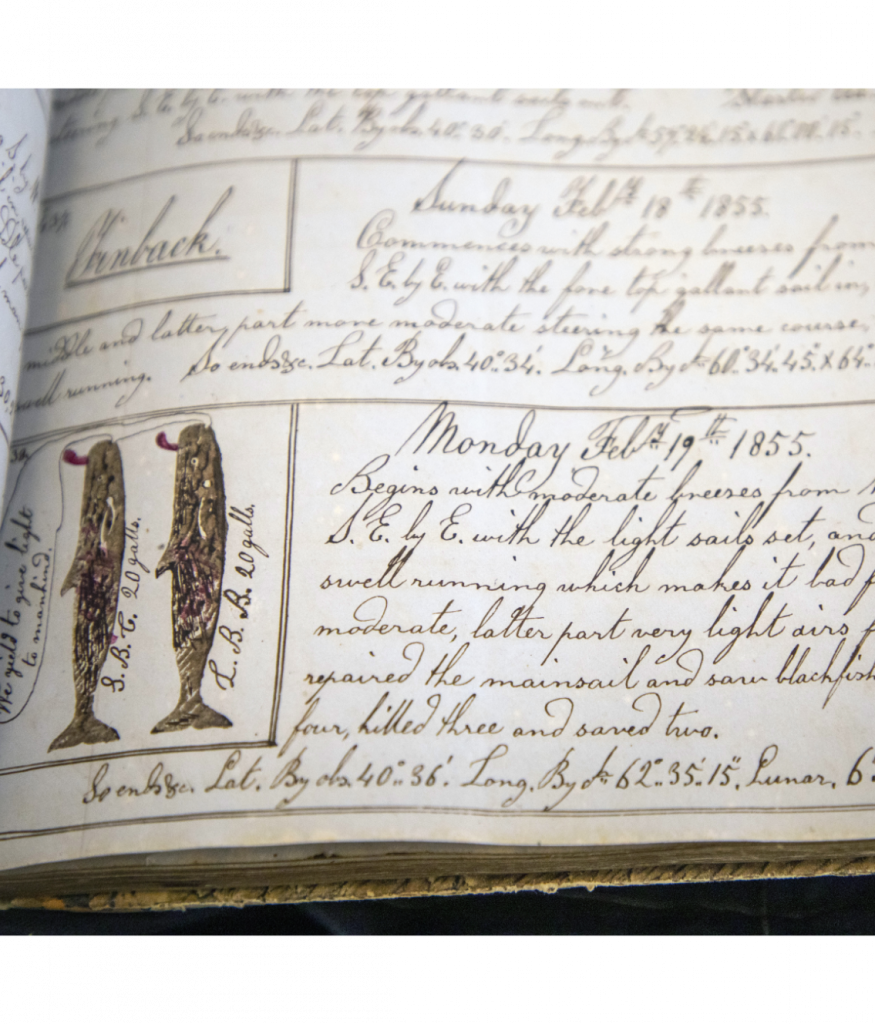 steering S. E. by E. with the top gallant sails out.
So ends &c. Lat. By obs. 40°. 30'. Long. By
Finback.
Sunday Feb.ry 18th 1855.
Commences with strong breezes from
S. E. by E. with the fore top gallant sail in,
middle and latter part more moderate steering the same course,
swell running. So ends &c. Lat. By obs. 40°. 34'. Long. By 60°. 34'. 45". X 64°.
We yield to give light
to mankind.
S. B. C. 20 galls.
L. B. B. 20 galls.
Monday Feb.ry 19th 1855.
Begins with moderate breezes from
S. E. by E. with the light sails set, and
swell running which makes it bad f
moderate, latter part very light airs f
repaired the mainsail and saw blackfish
four, killed three and saved two.
So ends &c. Lat. By obs. 40°. 36'. Long. By 62°. 35'. 15". Lunar. 6